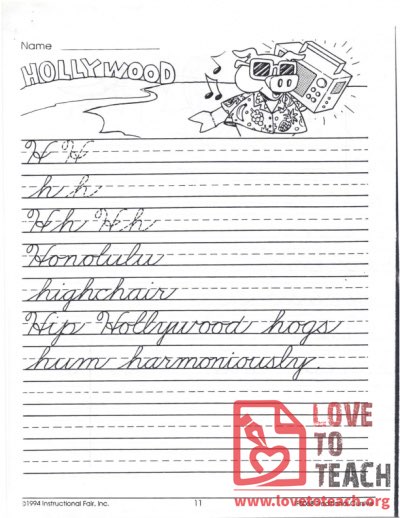 Name
HOLLYWOOD
H H
h h
Hh Hh
Honolulu
highchair
Hip Hollywood hogs
hum harmoniously.
LOVE
TO
TEACH
www.lovetoteach.org
©1994 Instructional Fair, Inc.
11